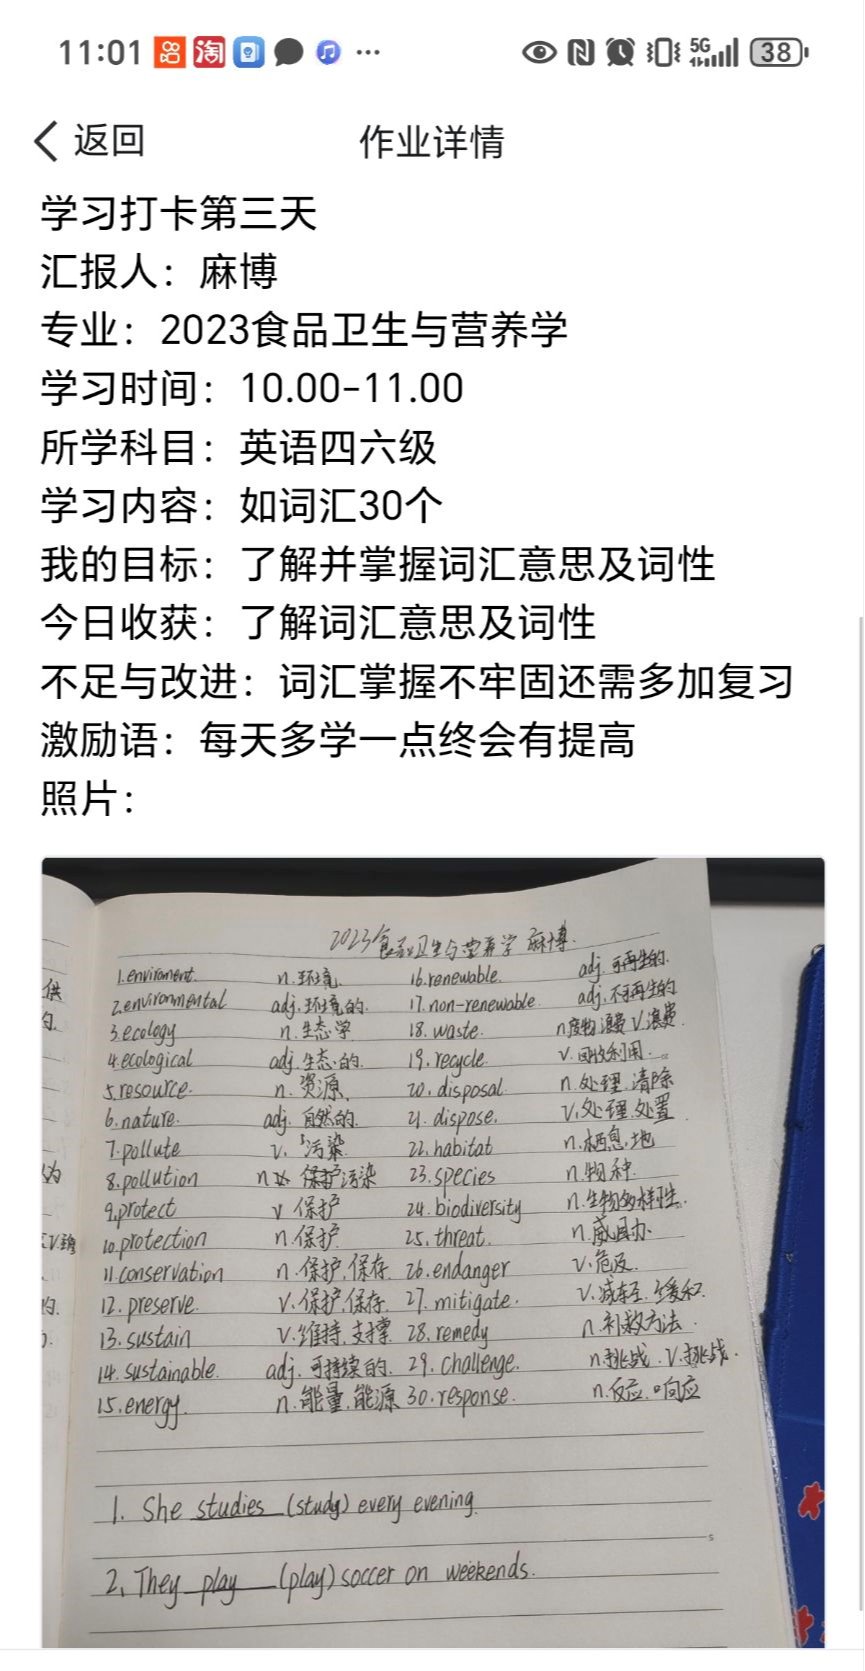 11:01 淘 5G 38
返回 作业详情
学习打卡第三天
汇报人：麻博
专业：2023食品卫生与营养学
学习时间：10.00-11.00
所学科目：英语四六级
学习内容：如词汇30个
我的目标：了解并掌握词汇意思及词性
今日收获：了解词汇意思及词性
不足与改进：词汇掌握不牢固还需多加复习
激励语：每天多学一点终会有提高
照片：
2023食品卫生与营养学 麻博.
1.enviroment. n.环境. 16.renewable. adj.可再生的.
2.environmental adj.环境的. 17.non-renewable. adj.不可再生的
3.ecology n.生态学 18.waste. n废物.浪费 V.浪费.
4.ecological adj.生态的. 19.recycle. v.回收利用.
5.resource. n.资源. 20.disposal. n.处理.清除
6.nature. adj.自然的. 21.dispose. v.处理.处置
7.pollute v.污染. 22.habitat n.栖息.地
8.pollution n 污染 23.species n.物种.
9.protect v 保护 24.biodiversity n.生物多样性.
10.protection n.保护. 25.threat. n.威胁
11.conservation n.保护.保存 26.endanger v.危及.
12.preserve. v.保护.保存. 27.mitigate. v.减轻.缓和.
13.sustain v.维持.支撑 28.remedy n.补救方法.
14.sustainable. adj.可持续的. 29.challenge. n.挑战.V.挑战.
15.energy. n.能量.能源 30.response. n.反应.响应
1. She studies (study) every evening.
2. They play (play) soccer on weekends.